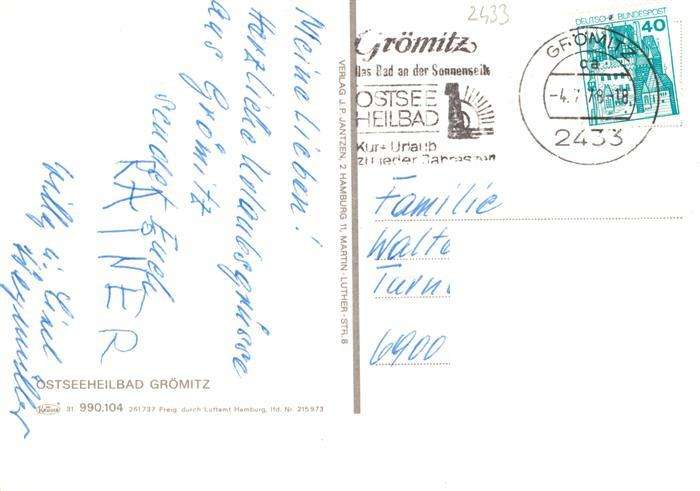 Meine Lieben!
Herzliche Urlaubsgrüsse
aus Grömitz
sendet Euch
RAINER
Willy u.
OSTSEEHEILBAD GRÖMITZ
Krüger 31 990.104 261737 Freig. durch Luftamt Hamburg, lfd. Nr. 215973
VERLAG J. P. JANTZEN, 2 HAMBURG 11, MARTIN-LUTHER-STR. 8
2433
Grömitz
das Bad an der Sonnenseite
OSTSEE
HEILBAD
Kur + Urlaub
zu jeder Jahreszeit
GRÖMITZ
-4.7.78-18
2433
DEUTSCHE BUNDESPOST
40
Familie
Walte
Turn
6900